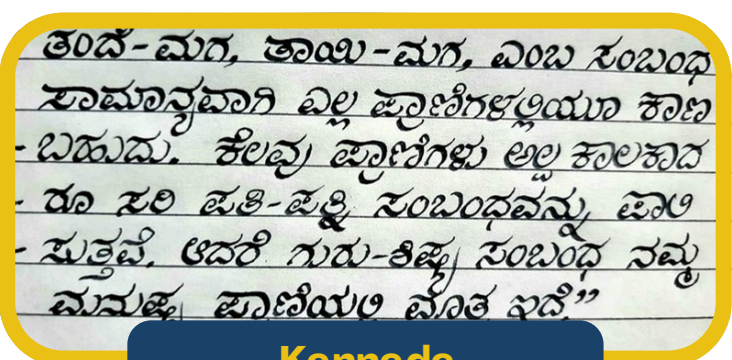 ತಂದೆ-ಮಗ, ತಾಯಿ-ಮಗ, ಎಂಬ ಸಂಬಂಧ
ಸಾಮಾನ್ಯವಾಗಿ ಎಲ್ಲ ಪ್ರಾಣಿಗಳಲ್ಲಿಯೂ ಕಾಣ
-ಬಹುದು. ಕೆಲವು ಪ್ರಾಣಿಗಳು ಅಲ್ಪ ಕಾಲಕಾದ
-ರೂ ಸರಿ ಪತಿ-ಪತ್ನಿ ಸಂಬಂಧವನ್ನು ಪಾಲಿ
-ಸುತ್ತವೆ. ಆದರೆ ಗುರು-ಶಿಷ್ಯ ಸಂಬಂಧ ನಮ್ಮ
ಮನುಷ್ಯ ಪ್ರಾಣಿಯಲಿ ಮಾತ್ರ ಇದೆ”
Kannada